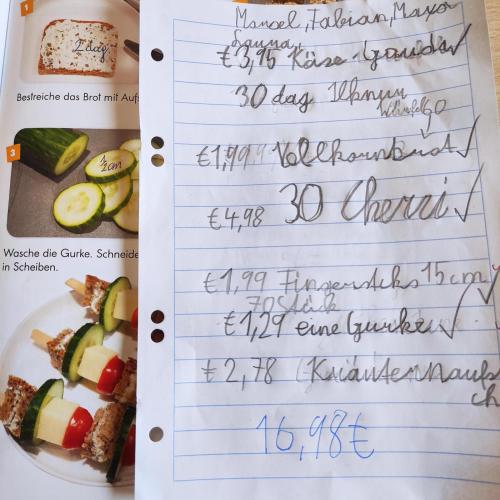 1
2 dag
Bestreiche das Brot mit Aufs
3
½ cm
Wasche die Gurke. Schneide
in Scheiben.
Manoel, Fabian,
€3,95 Käse Gouda ✓
30 dag
€1,99 Vollkornbrot ✓
€4,98 30 Cherri ✓
€1,99 Fingersticks 15 cm
70 Stück
€1,29 eine Gurke ✓
€2,78 (Kräuteraufs
ch
16,98€